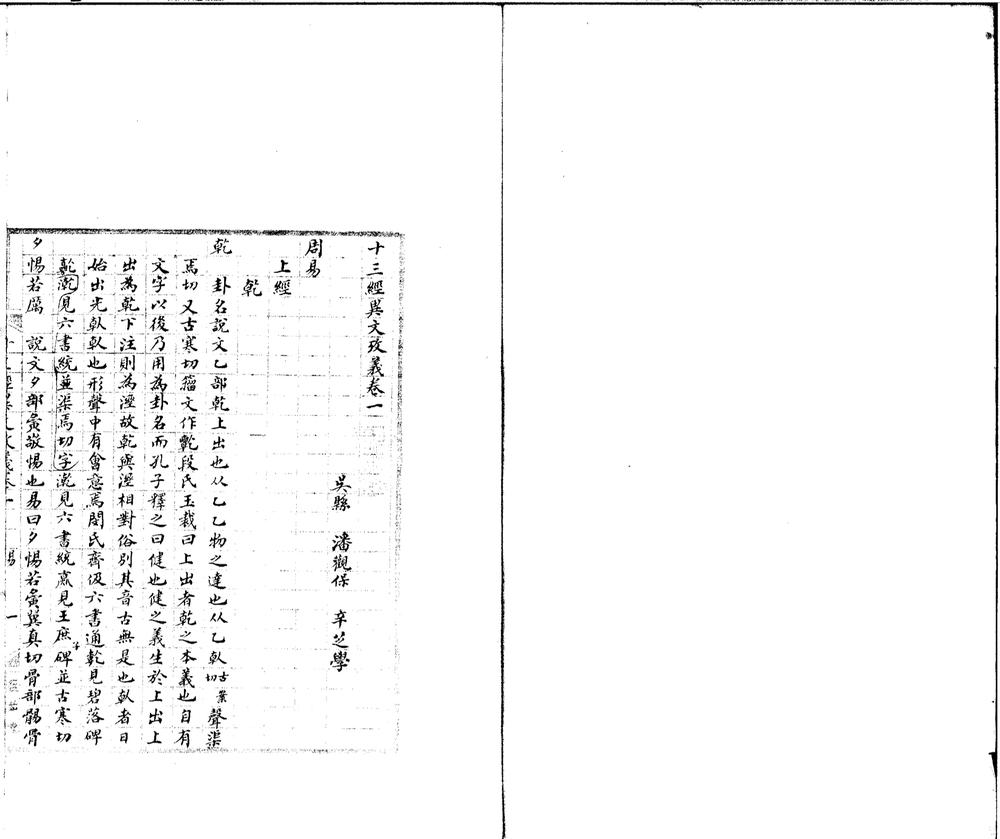 十三經異文攷義卷一
吳縣 潘觀保 辛芝學
周易
上經
乾
乾 卦名說文乙部乾上出也从乙乙物之達也从乙倝古案切聲渠
焉切又古寒切籀文作𠃵段氏玉裁曰上出者乾之本義也自有
文字以後乃用為卦名而孔子釋之曰健也健之義生於上出上
出為乾下注則為溼故乾與溼相對俗別其音古無是也倝者日
始出光倝倝也形聲中有會意焉閔氏齊伋六書通乾見碧落碑
見六書統並渠焉切字漧見六書統 見王庶子碑並古寒切
夕惕若厲 說文夕部夤敬惕也易曰夕惕若夤翼真切骨部䯜骨
易 一